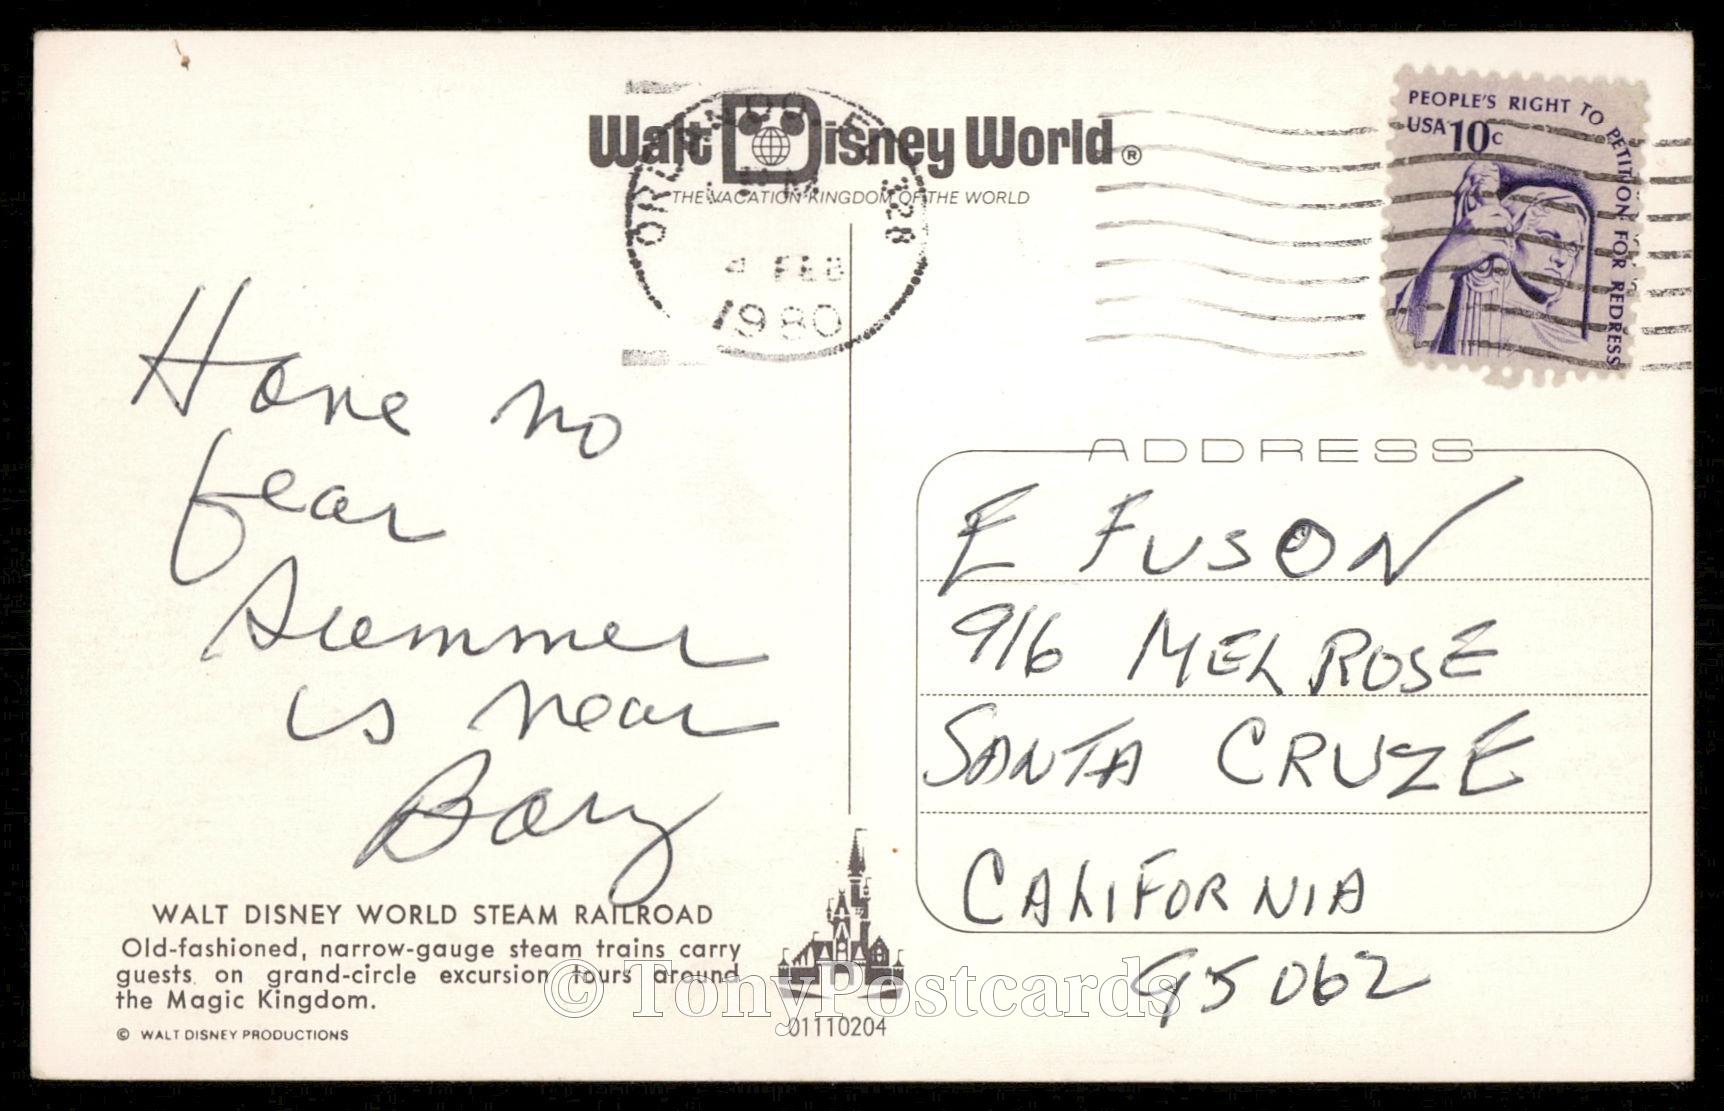 Walt Disney World ®
THE VACATION KINGDOM OF THE WORLD
ORLANDO FL 328
4 FEB
1980
PEOPLE'S RIGHT TO PETITION FOR REDRESS
USA 10c
Have no
fear
Summer
is near
Bary
ADDRESS
E FUSON
916 MELROSE
SANTA CRUZE
CALIFORNIA
95062
WALT DISNEY WORLD STEAM RAILROAD
Old-fashioned, narrow-gauge steam trains carry
guests on grand-circle excursion tours around
the Magic Kingdom.
© WALT DISNEY PRODUCTIONS
01110204
© TonyPostcards